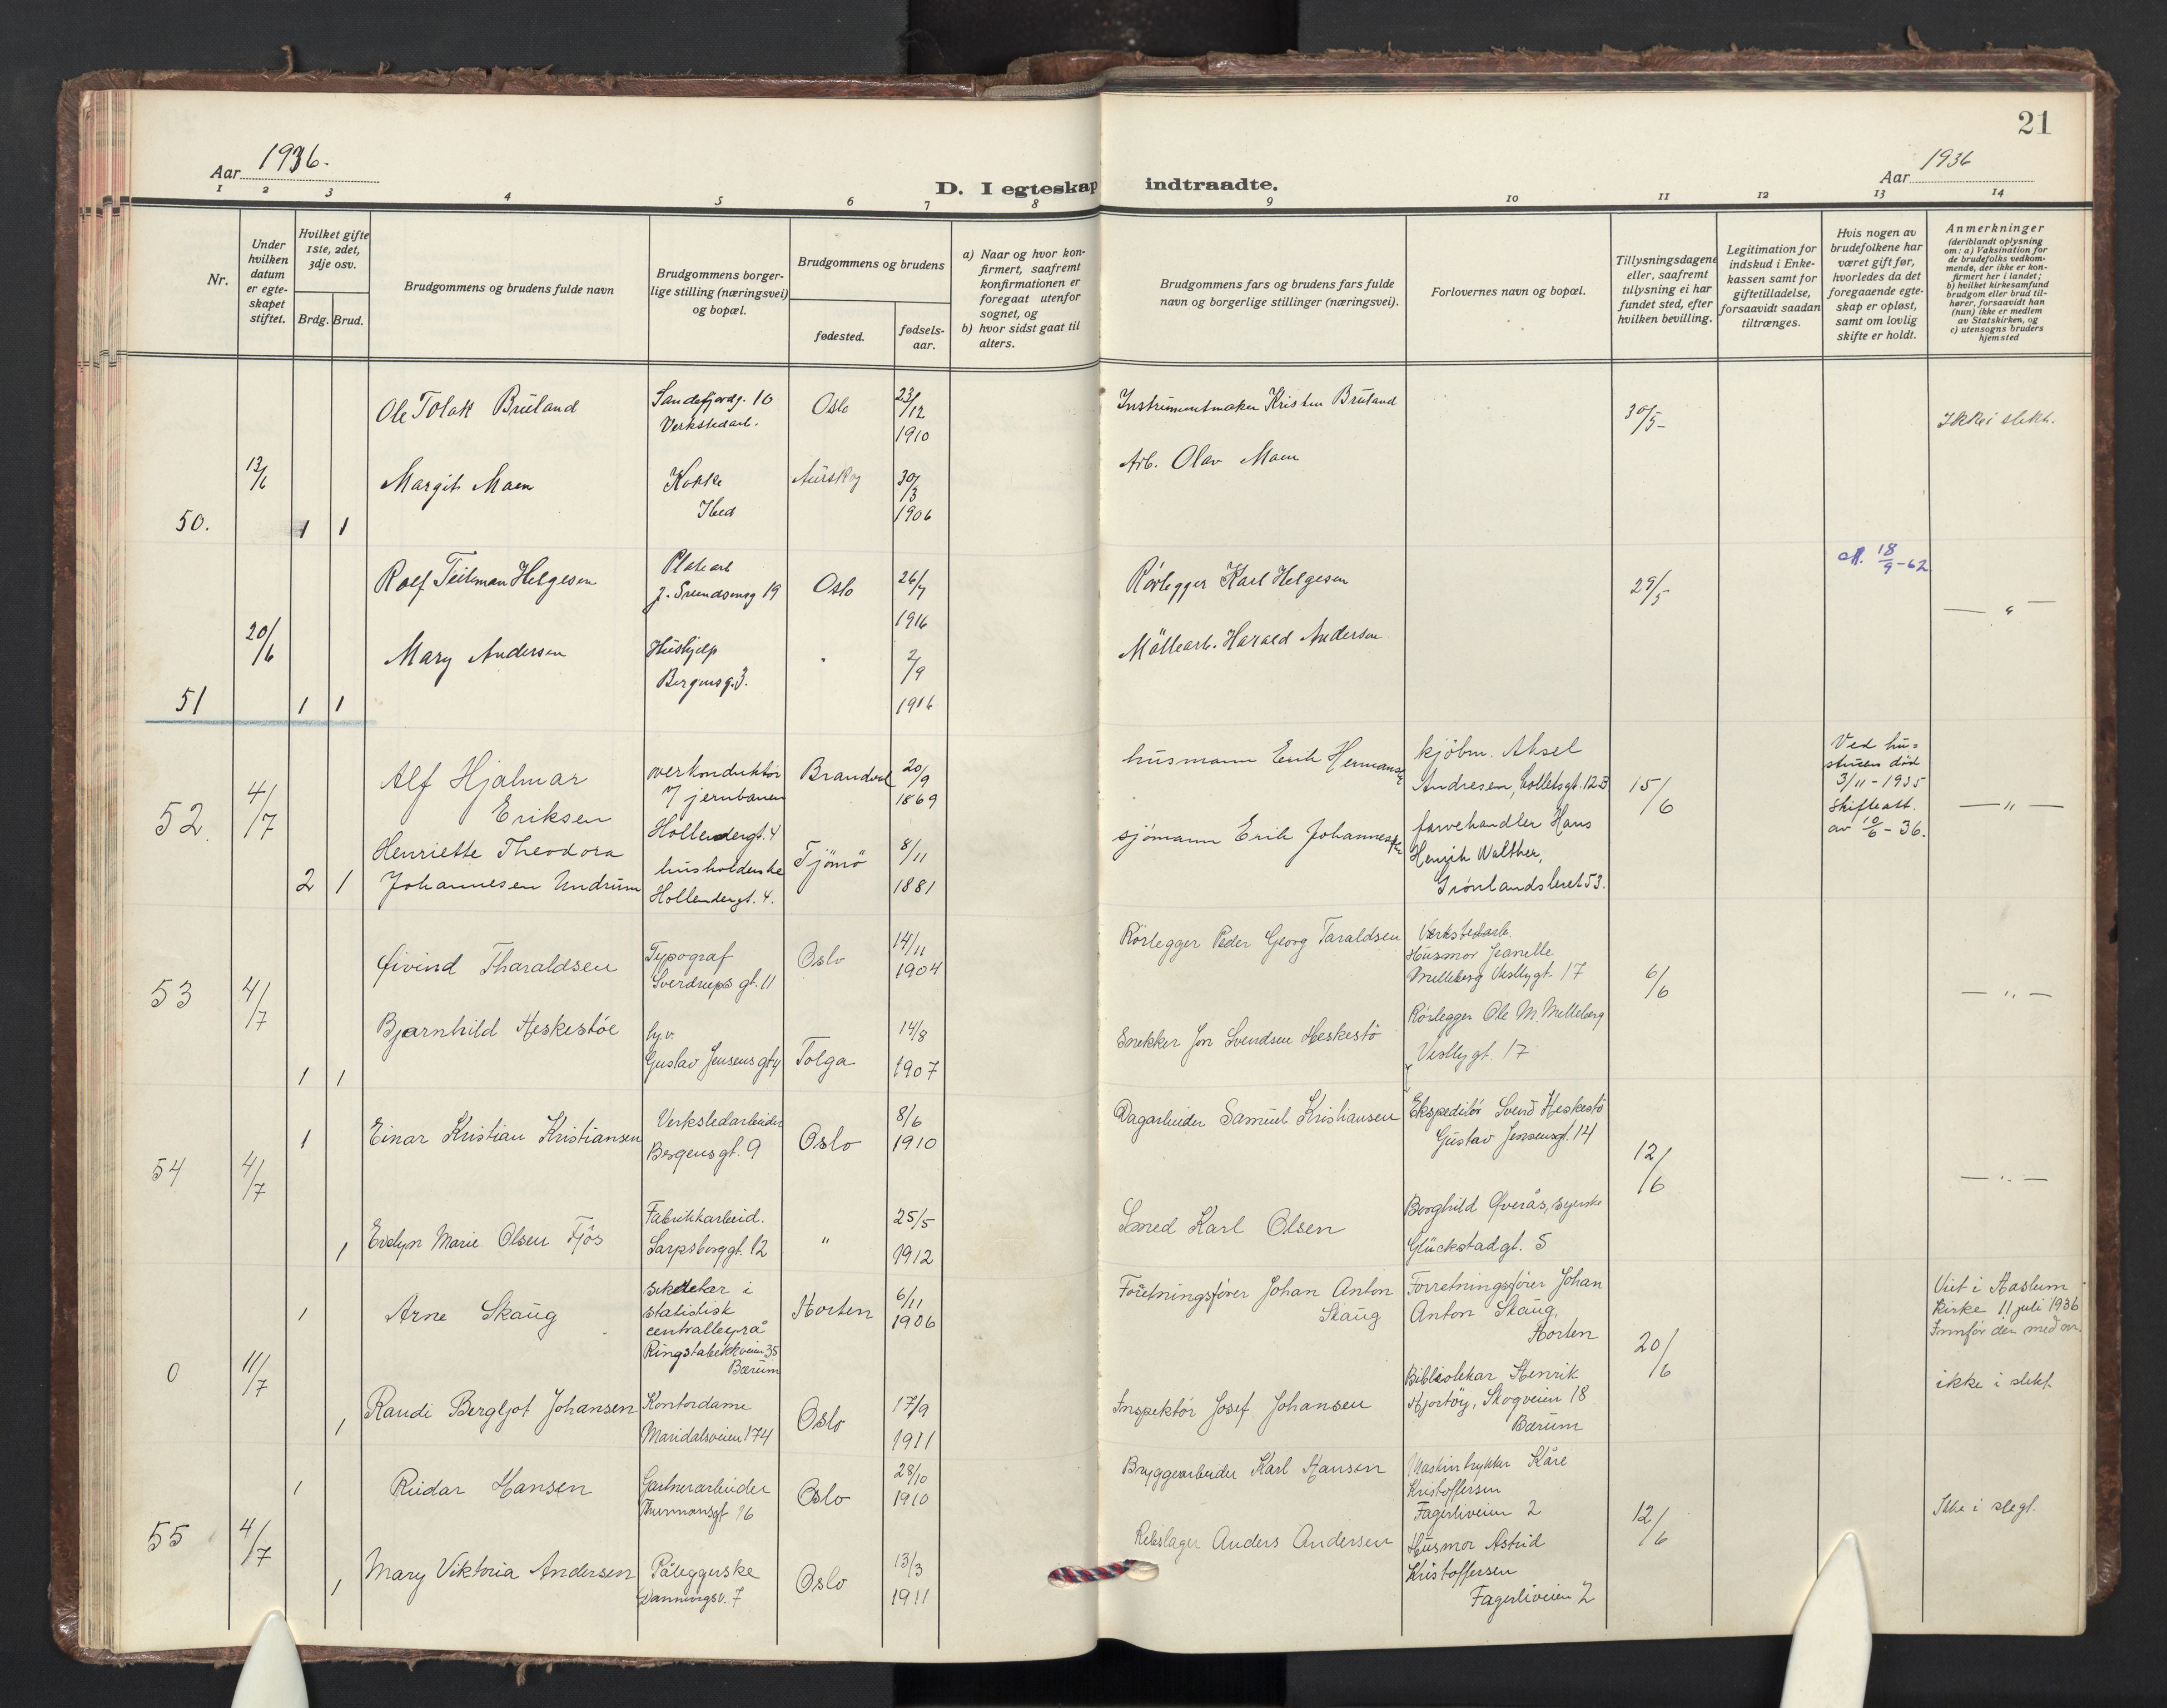 21
Aar 1936.
D. I egteskap indtraadte.
Aar 1936
1 2 3 4 5 6 7 8 9 10 11 12 13 14
Nr.
Under hvilken datum er egte-skapet stiftet.
Hvilket gifte 1ste, 2det, 3dje osv.
Brdg. Brud.
Brudgommens og brudens fulde navn
Brudgommens borger-lige stilling (næringsvei) og bopæl.
Brudgommens og brudens
fødested.
fødsels-aar.
a) Naar og hvor kon-firmert, saafremt konfirmationen er foregaat utenfor sognet, og
b) hvor sidst gaat til alters.
Brudgommens fars og brudens fars fulde navn og borgerlige stillinger (næringsvei).
Forlovernes navn og bopæl.
Tillysningsdagene eller, saafremt tillysning ei har fundet sted, efter hvilken bevilling.
Legitimation for indskud i Enke-kassen samt for giftetilladelse, forsaavidt saadan tiltrænges.
Hvis nogen av brudefolkene har været gift før, hvorledes da det foregaaende egte-skap er opløst, samt om lovlig skifte er holdt.
Anmerkninger
(deriblandt oplysning om: a) Vaksination for de brudefolks vedkom-mende, der ikke er kon-firmert her i landet; b) hvilket kirkesamfund brudgom eller brud til-hører, forsaavidt han (hun) ikke er medlem av Statskirken, og c) utensogns bruders hjemsted
50. 13/6 1 1
Ole Tolak Bruland
Sandefjordg. 10
Verkstedarb.
Oslo
23/12 1910
Instrumentmaker Kristen Bruland
30/5-
Ikke i slekt.
Margit Maen
Kokke
Ibid
Aurskog
30/3 1906
Arb. Olav Maen
51 20/6 1 1
Rolf Teilman Helgesen
Platearb
J. Svendsensg 19
Oslo
26/7 1916
Rörlegger Karl Helgesen
29/5
18/9-62
— " —
Mary Andersen
Hushjelp
Bergensg. 3.
2/9 1916
Møllearb. Harald Andersen
52 4/7 2 1
Alf Hjalmar
Eriksen
overkonduktör
v/ jernbanen
Hollendergt. 4
Brandval
20/9 1869
husmann Erik Hermansen
kjöbm. Aksel
Andresen, Colletsgt. 12B
15/6
Ved hu=
struens död
3/11-1935
Skifteatt.
av 10/6-36.
— " —
Henriette Theodora
Johannesen Undrum
husholderske
Hollendergt. 4.
Tjömö
8/11 1881
sjömann Erik Johannesen
farvehandler Hans
Henrik Walther,
Grönlandsleret 53.
53 4/7 1 1
Øivind Tharaldsen
Typograf
Sverdrups gt. 11
Oslo
14/11 1904
Rörlegger Peder Georg Taraldsen
Verkstedarb.
Husmor Jeanette
Melleberg Vestbygt. 17
6/6
— " —
Bjarnhild Heskestöe
hj.v.
Gustav Jensens gt 14
Tolga
14/8 1907
Snekker Jon Svendsen Heskestö
Rörlegger Ole M. Melleberg
Vestbygt. 17
54 4/7 1
Einar Kristian Kristiansen
Verkstedarbeider
Bergensgt. 9
Oslo
8/6 1910
Dagarbeider Samuel Kristiansen
Ekspeditör Svend Heskestö
Gustav Jensensgt. 14
12/6
— " —
1
Evelyn Marie Olsen Fjös
Fabrikkarbeid.
Sarpsborggt. 12
"
25/5 1912
Smed Karl Olsen
Borghild Øverås, syerske
Glückstadgt. 5
0 11/7 1
Arne Skaug
sekretær i
statistisk
centralbyrå
Ringstabekkveien 35
Bærum
Horten
6/11 1906
Forretningsförer Johan Anton
Skaug
Forretningsförer Johan
Anton Skaug,
Horten
20/6
Viet i Haslum
Kirke 11 juli 1936
Innför der med nr.
ikke i slekt
1
Randi Bergljot Johansen
Kontordame
Maridalsveien 174
Oslo
17/9 1911
Inspektör Josef Johansen
Bibliotekar Henrik
Hjartöy, Skogveien 18
Bærum
55 4/7 1
Reidar Hansen
Gartnerarbeider
Thurmannsgt 16
Oslo
28/10 1910
Bryggearbeider Karl Hansen
Maskintrykker Kåre
Kristoffersen
Fagerliveien 2
12/6
Ikke i slegt.
1
Mary Viktoria Andersen
Påleggerske
Danningsv. 7
Oslo
13/3 1911
Rebslager Anders Andersen
Husmor Astrid
Kristoffersen
Fagerliveien 2